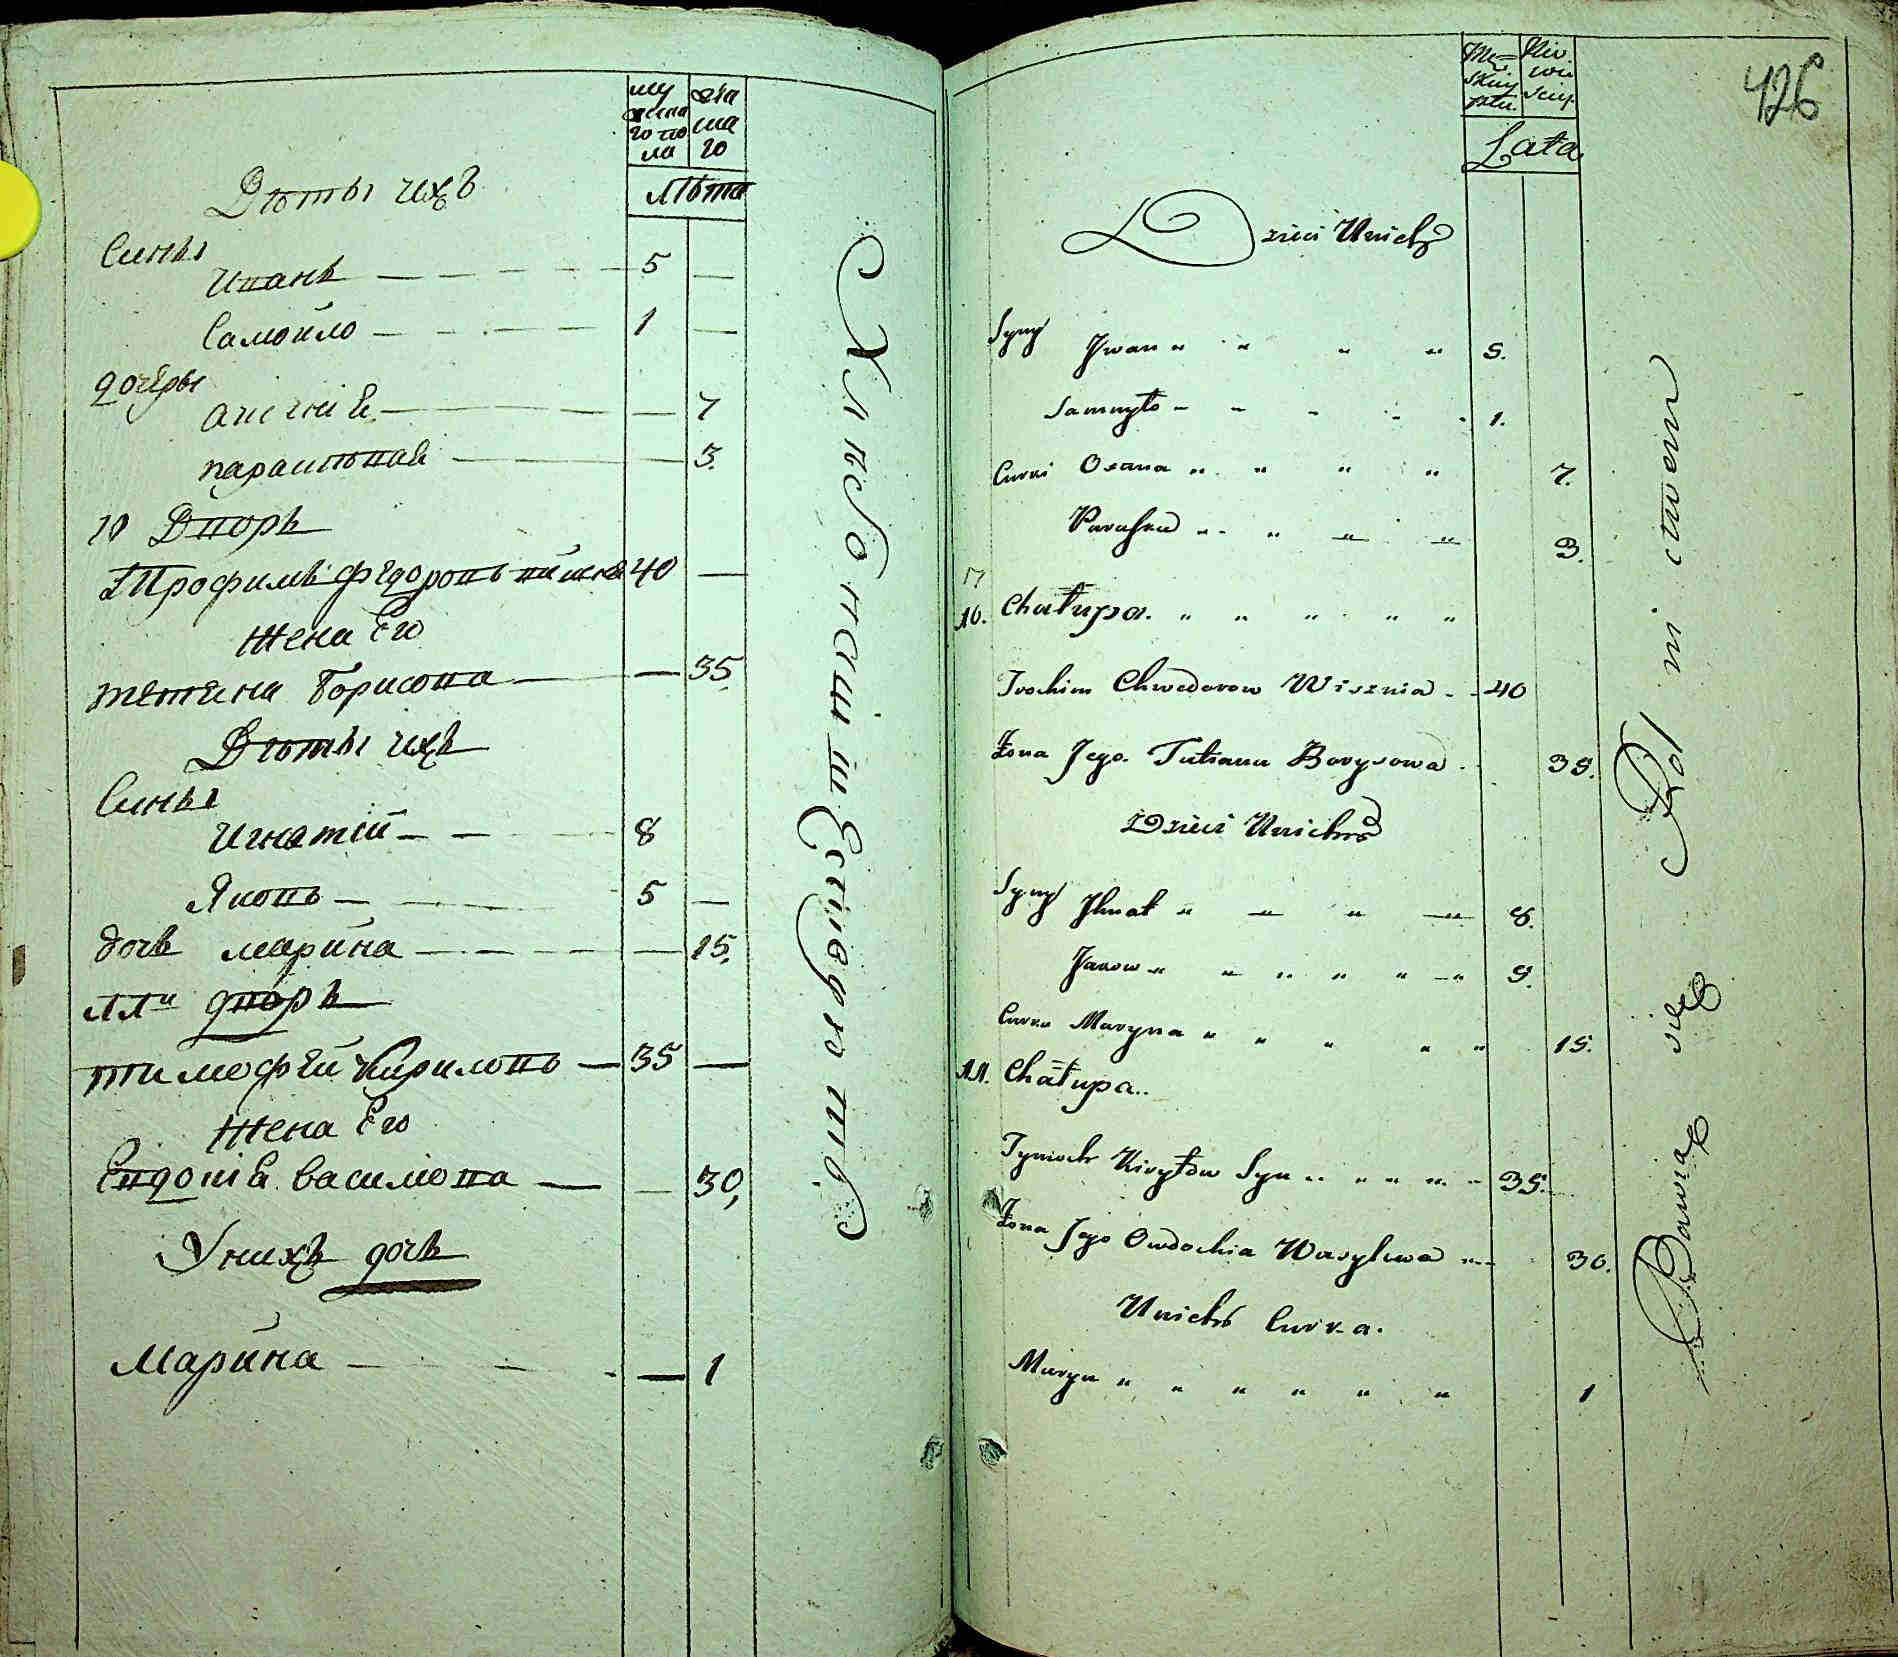 му
жеска
го по
ла
жен
ска
го
Лѣта
Дѣти ихъ
Сины
Иванъ 5
Самойло 1
дочери
Аксинiя 7
Парасковiя 3.
10 Дворъ
Трофимъ Федоровъ вишня 40
Жена Его
Татяна Борисова 35
Дѣти ихъ
Сины
Игнатiй 8
Яковъ 5
дочь Марина 15.
11й дворъ
Тимофей Кириловъ 35
Жена Его
Евдокiя Василиова 30,
У нихъ дочь
Марина 1
Хлебопашествуютъ
426
Lata
Dzieci Unich
Syny Jwan 5.
Samuyło 1.
Curki Oxana 7.
Paraska 3.
10. Chałupa.
Trochim Chwedorow Wisznia 40
Żona Jego Tatiana Borysowa 35.
Dzieci Unich
Syny Jhnat 8.
Jakow 5.
Curka Maryna 15.
11. Chałupa
Tymoch Kiryłow Syn 35.
Żona Jego Owdochia Wasylewa 30.
Unich Curka.
Maryna 1
Bawią się Rolnictwem